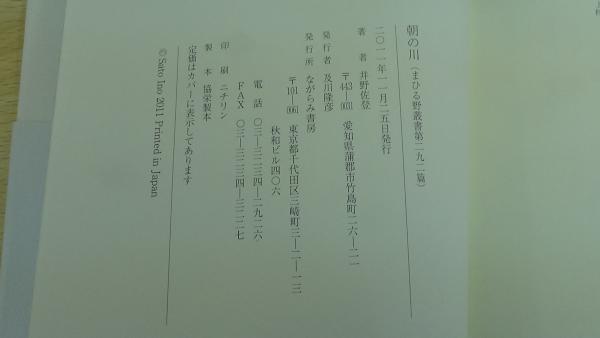 朝の川（まひる野叢書第二九二篇）
二〇一一年一一月二五日発行
著 者 井野佐登
〒443-0031 愛知県蒲郡市竹島町二六―二一
発行者 及川隆彦
発行所 ながらみ書房
〒101-0061 東京都千代田区三崎町三―二―一三
秋和ビル四〇六
電 話 〇三―三二三四―二九二六
ＦＡＸ 〇三―三二三四―三二二七
印 刷 ニチリン
製 本 協栄製本
定価はカバーに表示してあります
© Sato Ino 2011 Printed in Japan